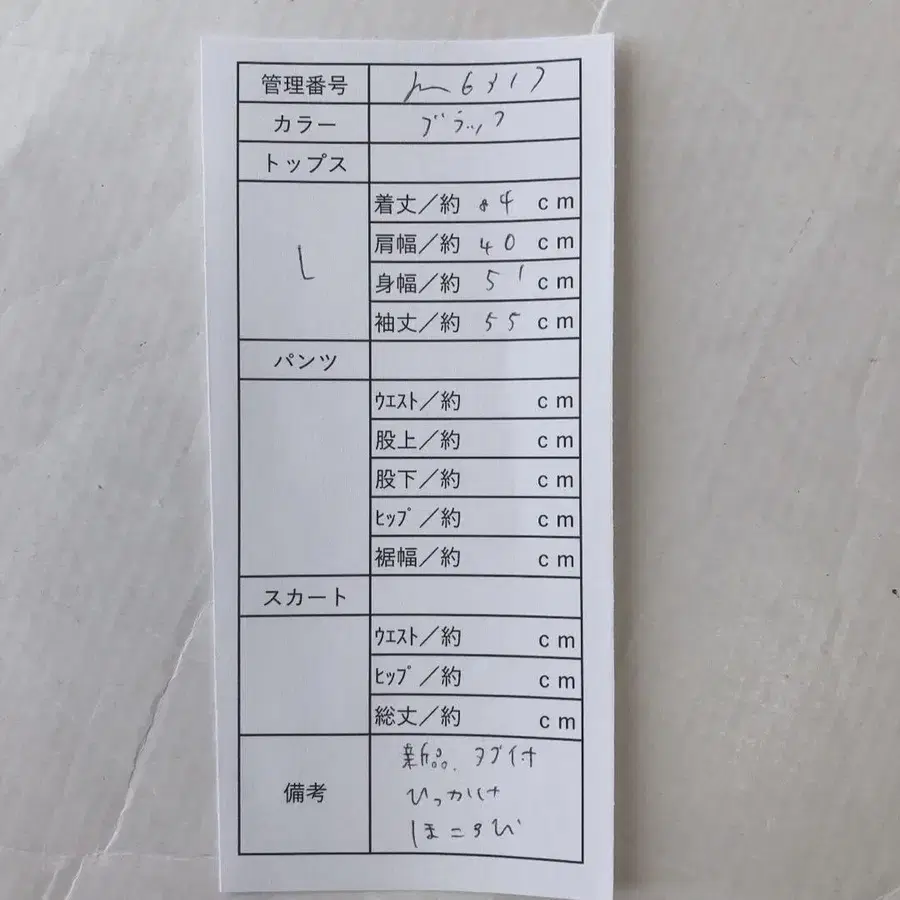 管理番号
カラー ブラック
トップス
L
着丈／約 84 cm
肩幅／約 40 cm
身幅／約 51 cm
袖丈／約 55 cm
パンツ
ｳｴｽﾄ／約 cm
股上／約 cm
股下／約 cm
ﾋｯﾌﾟ／約 cm
裾幅／約 cm
スカート
ｳｴｽﾄ／約 cm
ﾋｯﾌﾟ／約 cm
総丈／約 cm
備考
新品、タグ付
ひっかけ
ほころび